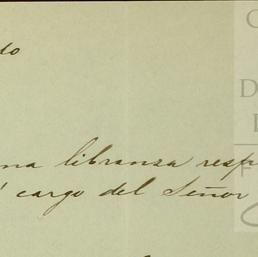 do
na libranza resp
á cargo del Señor